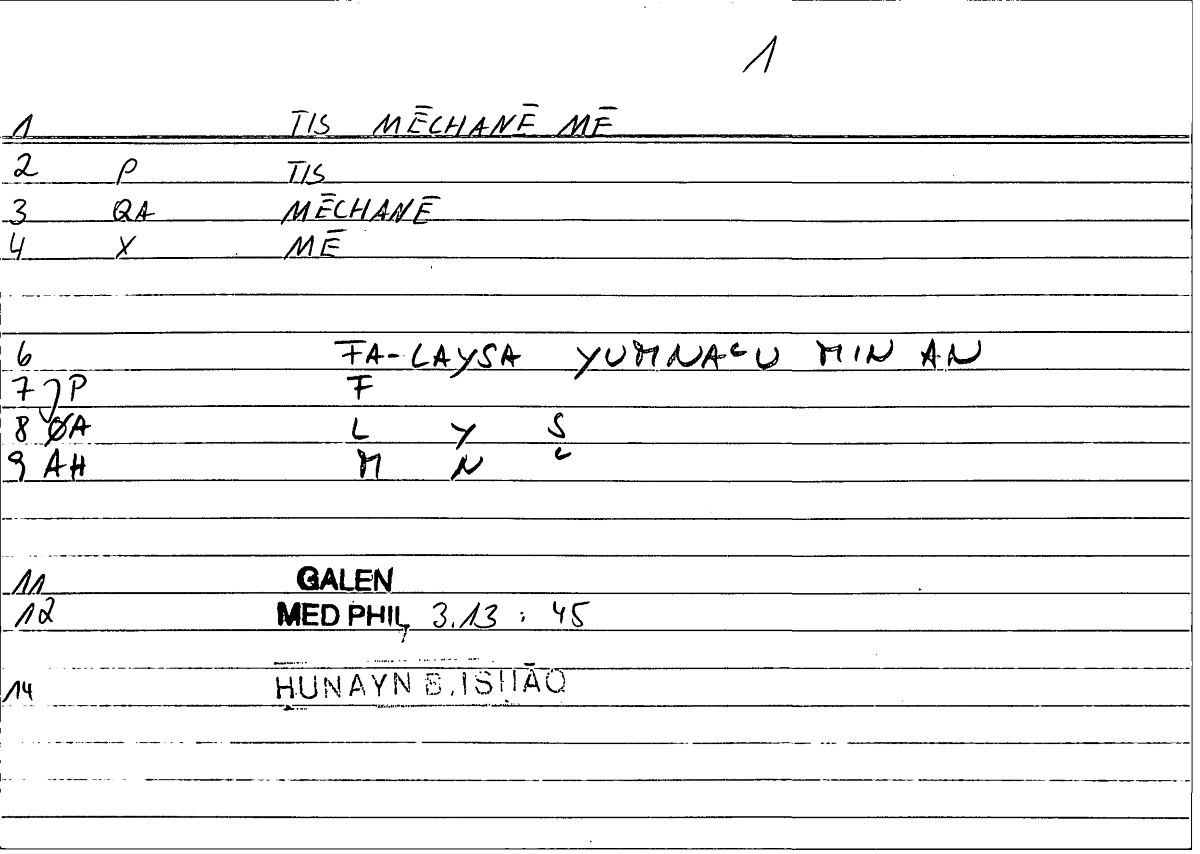 1
1 TIS MĒCHANĒ MĒ
2 P TIS
3 QA MĒCHANĒ
4 X MĒ
6 FA-LAYSA YUMNAʿU MIN AN
7 P F
8 ØA L Y S
9 AH M N ʿ
11 GALEN
12 MED PHIL, 3.13 : 45
14 ḤUNAYN B. ISḤĀQ